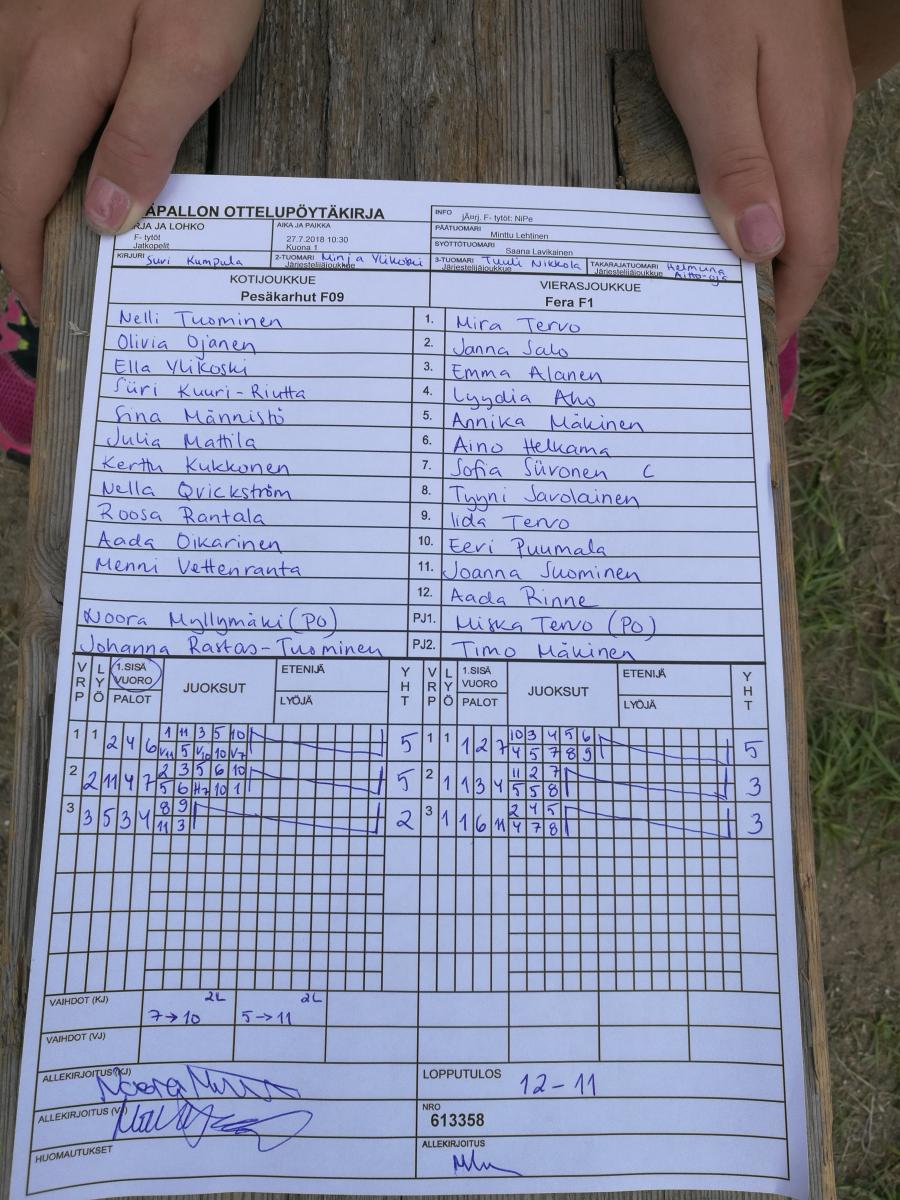 APALLON OTTELUPÖYTÄKIRJA
RJA JA LOHKO
F- tytöt
Jatkopelit
AIKA JA PAIKKA
27.7.2018 10:30
Kuona 1
INFO jÄrrj. F- tytöt: NiPe
PÄÄTUOMARI
Minttu Lehtinen
SYÖTTÖTUOMARI
Saana Lavikainen
KIRJURI Suvi Kumpula
2-TUOMARI Minja Ylikoski
Järjestelijäjoukkue
3-TUOMARI Tuuli Nikkola
Järjestelijäjoukkue
TAKARAJATUOMARI
Järjestelijäjoukkue
KOTIJOUKKUE
Pesäkarhut F09
VIERASJOUKKUE
Fera F1
Nelli Tuominen 1. Mira Tervo
Olivia Ojanen 2. Janna Salo
Ella Ylikoski 3. Emma Alanen
Siiri Kuuri-Riutta 4. Lyydia Aho
Sina Männistö 5. Annika Mäkinen
Julia Mattila 6. Aino Helkama
Kerttu Kukkonen 7. Sofia Siivonen C
Nella Qvickström 8. Tyyni Savolainen
Roosa Rantala 9. Iida Tervo
Aada Oikarinen 10. Eevi Puumala
Menni Vettenranta 11. Joanna Suominen
12. Aada Rinne
Noora Myllymäki (PO) PJ1. Miska Tervo (PO)
Johanna Rastas-Tuominen PJ2. Timo Mäkinen
VRP LYÖ 1.SISÄ VUORO PALOT JUOKSUT ETENIJÄ LYÖJÄ YHT VRP LYÖ 1.SISÄ VUORO PALOT JUOKSUT ETENIJÄ LYÖJÄ YHT
1 1 2 4 6 1 11 3 5 10 5 1 1 1 2 7 10 3 4 5 6 5
V11 5 V10 10 V7 4 5 7 8 9
2 2 11 4 7 2 3 5 6 10 5 2 1 1 3 4 11 2 7 3
5 6 H7 10 1 5 5 8
3 3 5 3 4 8 9 2 3 1 1 6 11 2 4 5 3
11 3 4 7 8
VAIHDOT (KJ) 2L 2L
7→10 5→11
VAIHDOT (VJ)
ALLEKIRJOITUS (KJ)
LOPPUTULOS 12-11
ALLEKIRJOITUS (VJ)
NRO
613358
HUOMAUTUKSET
ALLEKIRJOITUS